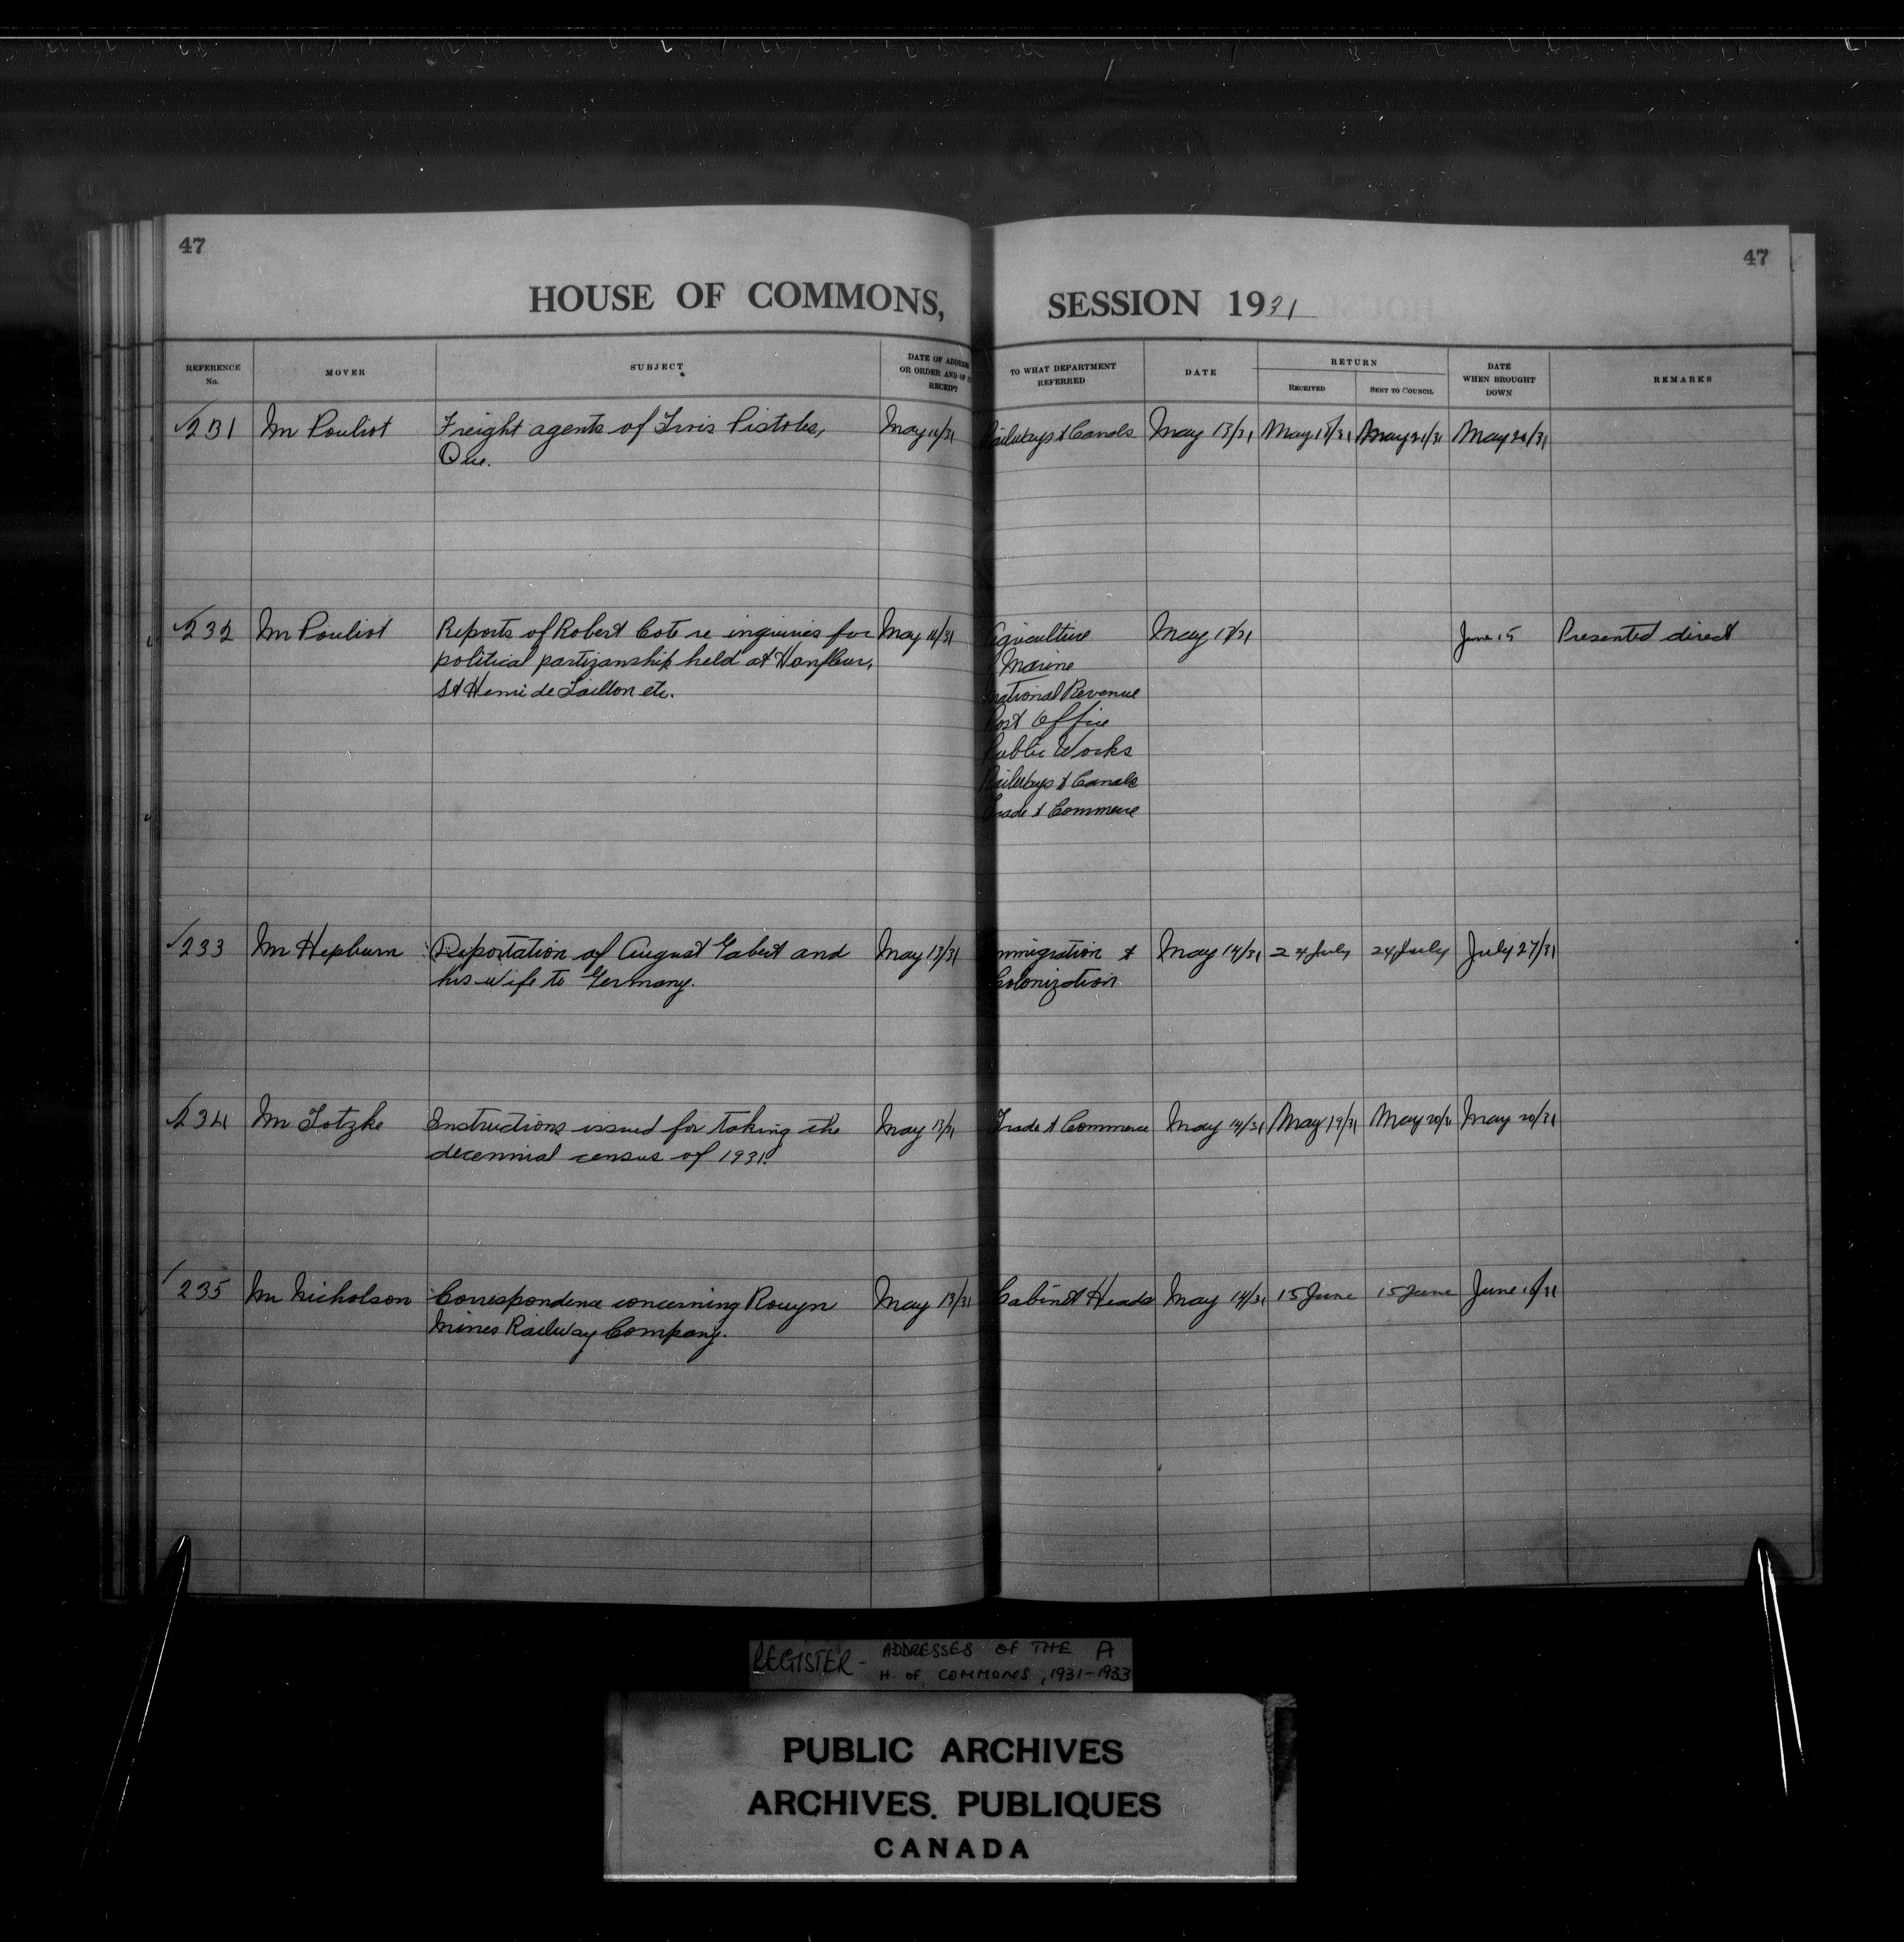 47
47
HOUSE OF COMMONS, SESSION 1931
REFERENCE No. MOVER SUBJECT DATE OF ADDRESS OR ORDER AND OF RECEIPT TO WHAT DEPARTMENT REFERRED DATE RETURN RECEIVED SENT TO COUNCIL DATE WHEN BROUGHT DOWN REMARKS
231 Mr Pouliot Freight agents of Trois Pistoles, May 11/31 Railways & Canals May 13/31 May 18/31 May 21/31 May 21/31
Que.
232 Mr Pouliot Reports of Robert Cote re inquiries for May 11/31 Agriculture May 13/31 June 15 Presented direct
political partizanship held at Honfleur, Marine
St Henri de Taillon etc. National Revenue
Post Office
Public Works
Railways & Canals
Trade & Commerce
233 Mr Hepburn Deportation of August Gabert and May 13/31 Immigration & May 14/31 24 July 24 July July 27/31
his wife to Germany. Colonization
234 Mr Totzke Instructions issued for taking the May 13/31 Trade & Commerce May 14/31 May 19/31 May 20/31 May 20/31
decennial census of 1931.
235 Mr Nicholson Correspondence concerning Rouyn May 13/31 Cabinet Heads May 14/31 15 June 15 June June 16/31
Mines Railway Company.
REGISTER - ADDRESSES OF THE A
H. of COMMONS, 1931-1933
PUBLIC ARCHIVES
ARCHIVES PUBLIQUES
CANADA